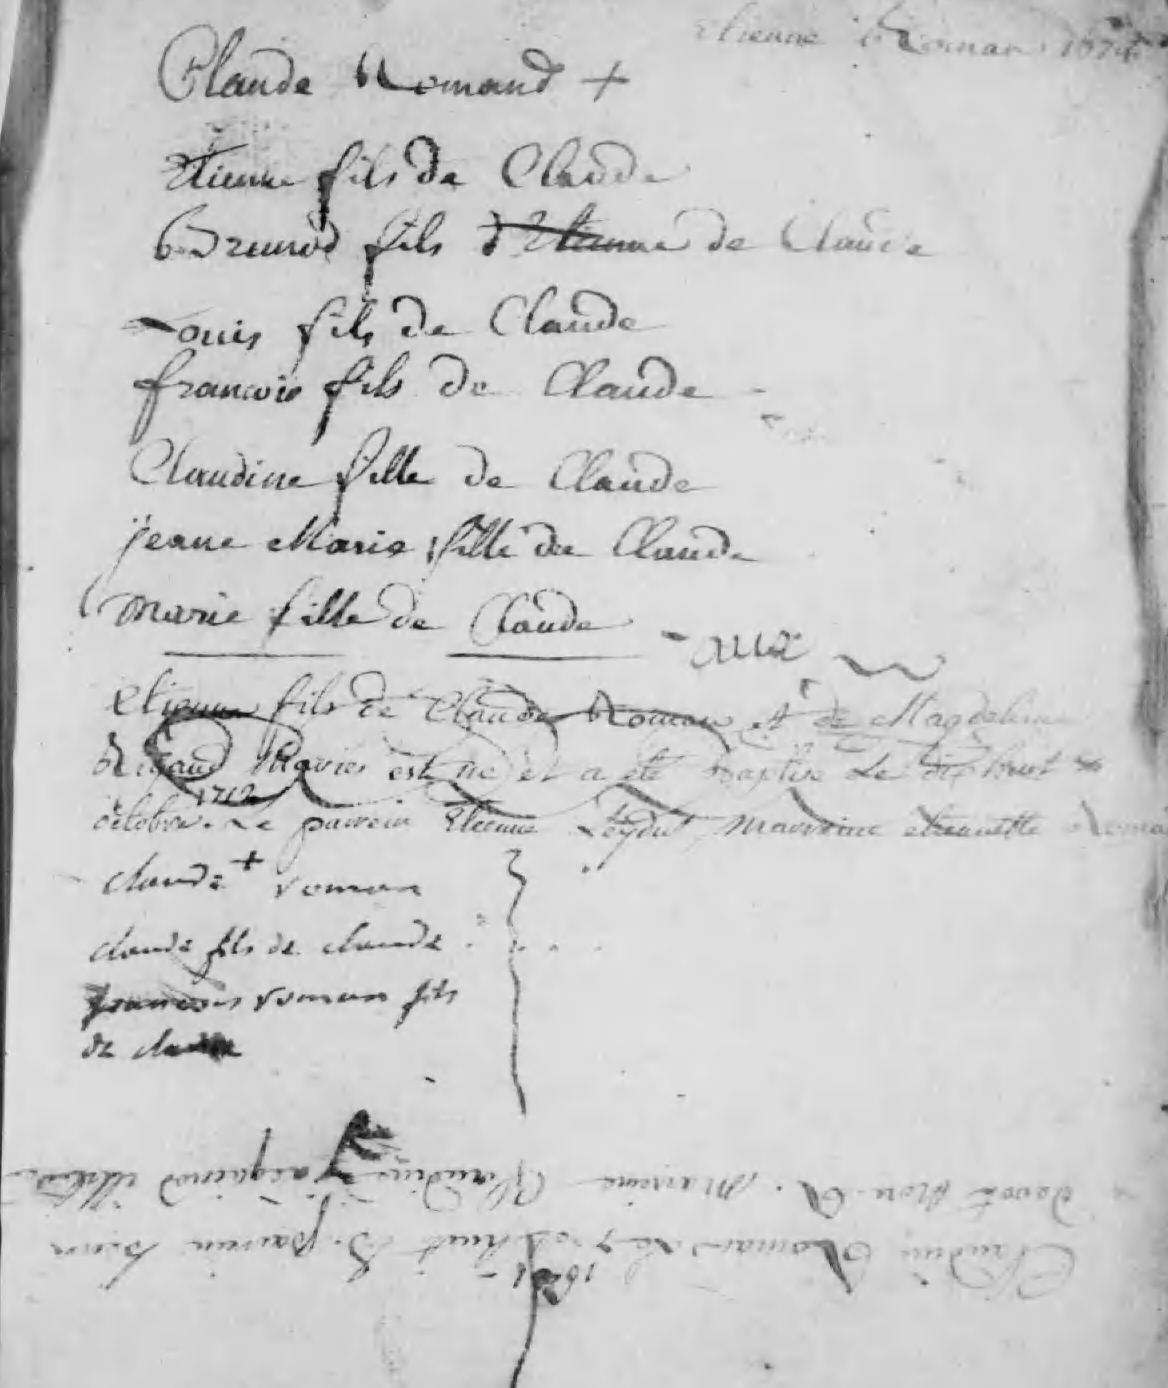 Etienne Roman 1674
Claude Romand +
Etienne fils de Claude
fils d'Etienne de Claude
Louis fils de Claude
francois fils de Claude
Claudine fille de Claude
jeane Marie fille de Claude
marie fille de Claude
Etienne fils de Claude Roman et de Magdeleine
Rigaud Mariés est né et a été baptisé le dix huit
1712
octobre. Le parrein Etienne marreine etiennette Roma
claude + roman
claude fils de claude
francois roman fils
de claude
1691
Claudine Roman huit parrein sieur
marreine Claudine illitérée